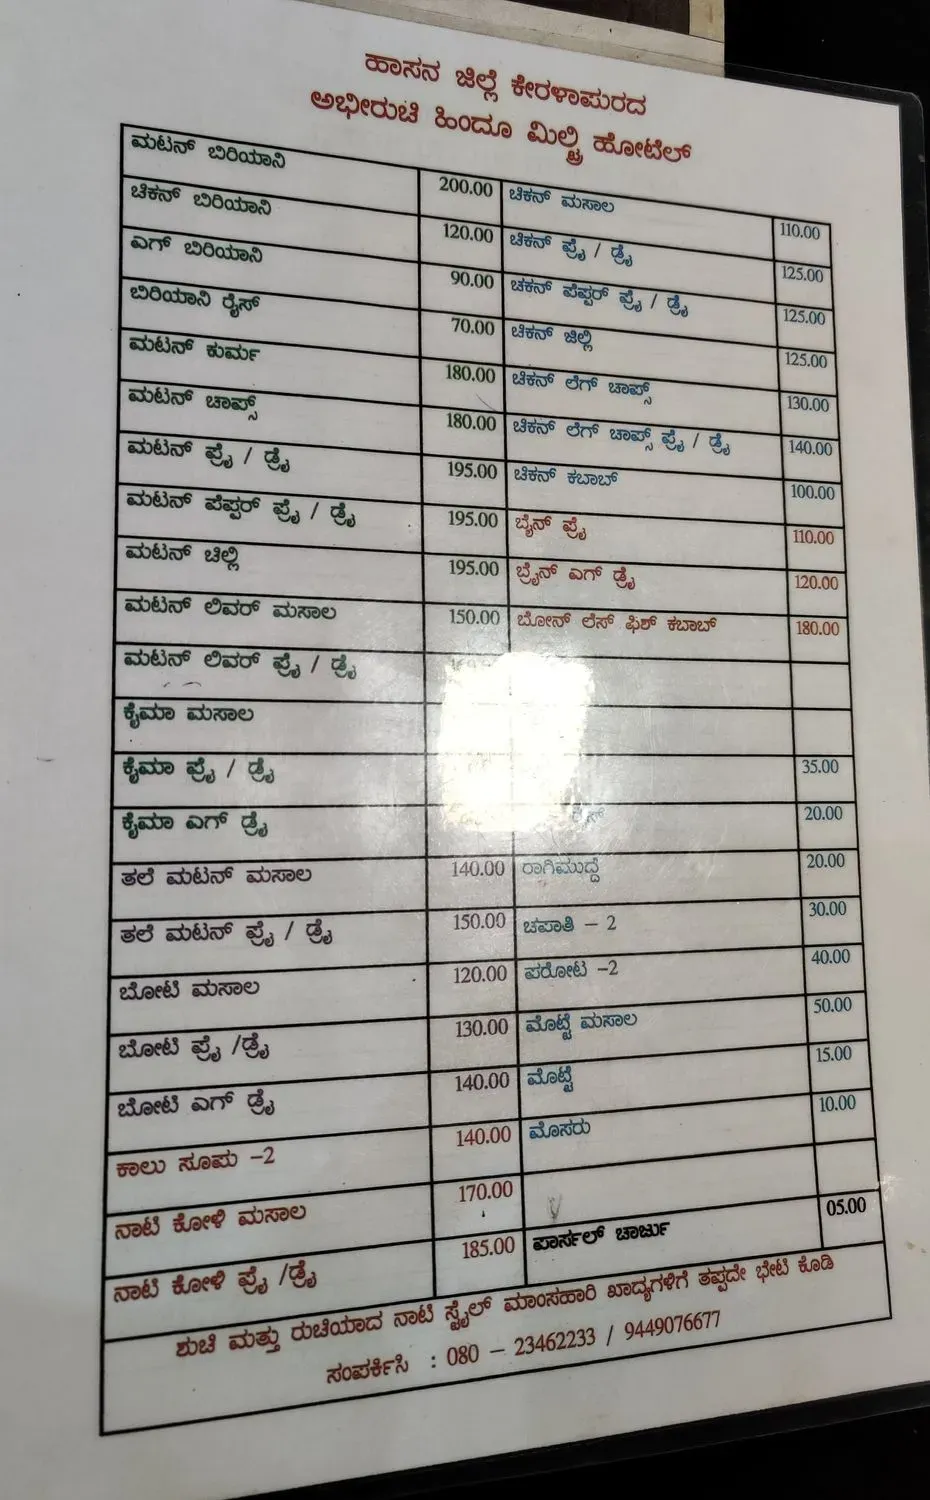 ಹಾಸನ ಜಿಲ್ಲೆ ಕೇರಳಾಪುರದ
ಅಭೀರುಚಿ ಹಿಂದೂ ಮಿಲ್ಟ್ರಿ ಹೋಟೆಲ್
ಮಟನ್ ಬಿರಿಯಾನಿ 200.00 ಚಿಕನ್ ಮಸಾಲ 110.00
ಚಿಕನ್ ಬಿರಿಯಾನಿ 120.00 ಚಿಕನ್ ಫ್ರೈ / ಡ್ರೈ 125.00
ಎಗ್ ಬಿರಿಯಾನಿ 90.00 ಚಿಕನ್ ಪೆಪ್ಪರ್ ಫ್ರೈ / ಡ್ರೈ 125.00
ಬಿರಿಯಾನಿ ರೈಸ್ 70.00 ಚಿಕನ್ ಜಿಲ್ಲಿ 125.00
ಮಟನ್ ಕುರ್ಮ 180.00 ಚಿಕನ್ ಲೆಗ್ ಚಾಪ್ಸ್ 130.00
ಮಟನ್ ಚಾಪ್ಸ್ 180.00 ಚಿಕನ್ ಲೆಗ್ ಚಾಪ್ಸ್ ಫ್ರೈ / ಡ್ರೈ 140.00
ಮಟನ್ ಫ್ರೈ / ಡ್ರೈ 195.00 ಚಿಕನ್ ಕಬಾಬ್ 100.00
ಮಟನ್ ಪೆಪ್ಪರ್ ಫ್ರೈ / ಡ್ರೈ 195.00 ಬೈನ್ ಫ್ರೈ 110.00
ಮಟನ್ ಚಿಲ್ಲಿ 195.00 ಬ್ರೈನ್ ಎಗ್ ಡ್ರೈ 120.00
ಮಟನ್ ಲಿವರ್ ಮಸಾಲ 150.00 ಬೋನ್ ಲೆಸ್ ಫಿಶ್ ಕಬಾಬ್ 180.00
ಮಟನ್ ಲಿವರ್ ಫ್ರೈ / ಡ್ರೈ
ಕೈಮಾ ಮಸಾಲ
ಕೈಮಾ ಫ್ರೈ / ಡ್ರೈ 35.00
ಕೈಮಾ ಎಗ್ ಡ್ರೈ 20.00
ತಲೆ ಮಟನ್ ಮಸಾಲ 140.00 ರಾಗಿಮುದ್ದೆ 20.00
ತಲೆ ಮಟನ್ ಫ್ರೈ / ಡ್ರೈ 150.00 ಚಪಾತಿ – 2 30.00
ಬೋಟಿ ಮಸಾಲ 120.00 ಪರೋಟ –2 40.00
ಬೋಟಿ ಫ್ರೈ /ಡ್ರೈ 130.00 ಮೊಟ್ಟೆ ಮಸಾಲ 50.00
ಬೋಟಿ ಎಗ್ ಡ್ರೈ 140.00 ಮೊಟ್ಟೆ 15.00
ಕಾಲು ಸೂಪು –2 140.00 ಮೊಸರು 10.00
ನಾಟಿ ಕೋಳಿ ಮಸಾಲ 170.00
ನಾಟಿ ಕೋಳಿ ಫ್ರೈ /ಡ್ರೈ 185.00 ಪಾರ್ಸಲ್ ಚಾರ್ಜು 05.00
ಶುಚಿ ಮತ್ತು ರುಚಿಯಾದ ನಾಟಿ ಸ್ಟೈಲ್ ಮಾಂಸಹಾರಿ ಖಾದ್ಯಗಳಿಗೆ ತಪ್ಪದೇ ಭೇಟಿ ಕೊಡಿ
ಸಂಪರ್ಕಿಸಿ : 080 – 23462233 / 9449076677